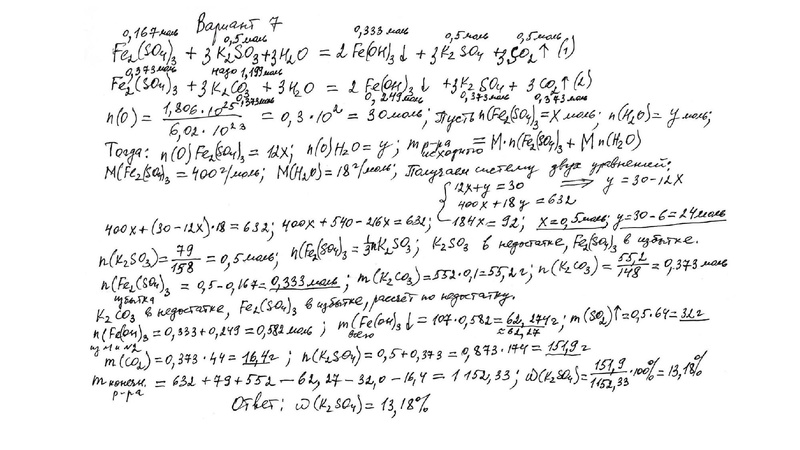 Вариант 7
0,167 моль 0,5 моль 0,333 моль 0,5 моль 0,5 моль
Fe2(SO4)3 + 3K2SO3 + 3H2O = 2Fe(OH)3↓ + 3K2SO4 + 3SO2↑ (1)
0,373 моль надо 1,199 моль
Fe2(SO4)3 + 3K2CO3 + 3H2O = 2Fe(OH)3↓ + 3K2SO4 + 3CO2↑ (2)
0,373 моль 0,249 моль 0,373 моль 0,373 моль
n(O) = 1,806·10^25 / 6,02·10^23 = 0,3·10^2 = 30 моль; Пусть n(Fe2(SO4)3 = X моль; n(H2O) = y моль;
Тогда: n(O)Fe2(SO4)3 = 12X; n(O)H2O = y; m р-ра исходного = M·n(Fe2(SO4)3 + Mn(H2O)
M(Fe2(SO4)3 = 400 г/моль; M(H2O) = 18 г/моль; Получаем систему двух уравнений:
{12X + y = 30 ⟹ y = 30 - 12X
400X + 18y = 632
400X + (30 - 12X)·18 = 632; 400X + 540 - 216X = 632; 184X = 92; X = 0,5 моль; y = 30 - 6 = 24 моль
n(K2SO3) = 79/158 = 0,5 моль; n(Fe2(SO4)3 = 1/3 n K2SO3; K2SO3 в недостатке, Fe2(SO4)3 в избытке.
n(Fe2(SO4)3 избытка = 0,5 - 0,167 = 0,333 моль; m(K2CO3) = 552·0,1 = 55,2 г; n(K2CO3) = 55,2/148 = 0,373 моль
K2CO3 в недостатке, Fe2(SO4)3 в избытке, рассчёт по недостатку.
n(Fe(OH)3 = 0,333 + 0,249 = 0,582 моль; m(Fe(OH)3↓ = 107·0,582 = 62,274 г; m(SO2)↑ = 0,5·64 = 32 г
из 1 и 2 всего ≈ 62,27
m(CO2) = 0,373·44 = 16,4 г; n(K2SO4) = 0,5 + 0,373 = 0,873·174 = 151,9 г
m конечн. р-ра = 632 + 79 + 552 - 62,27 - 32,0 - 16,4 = 1152,33; ω(K2SO4) = 151,9/1152,33·100% = 13,18%
Ответ: ω(K2SO4) = 13,18%